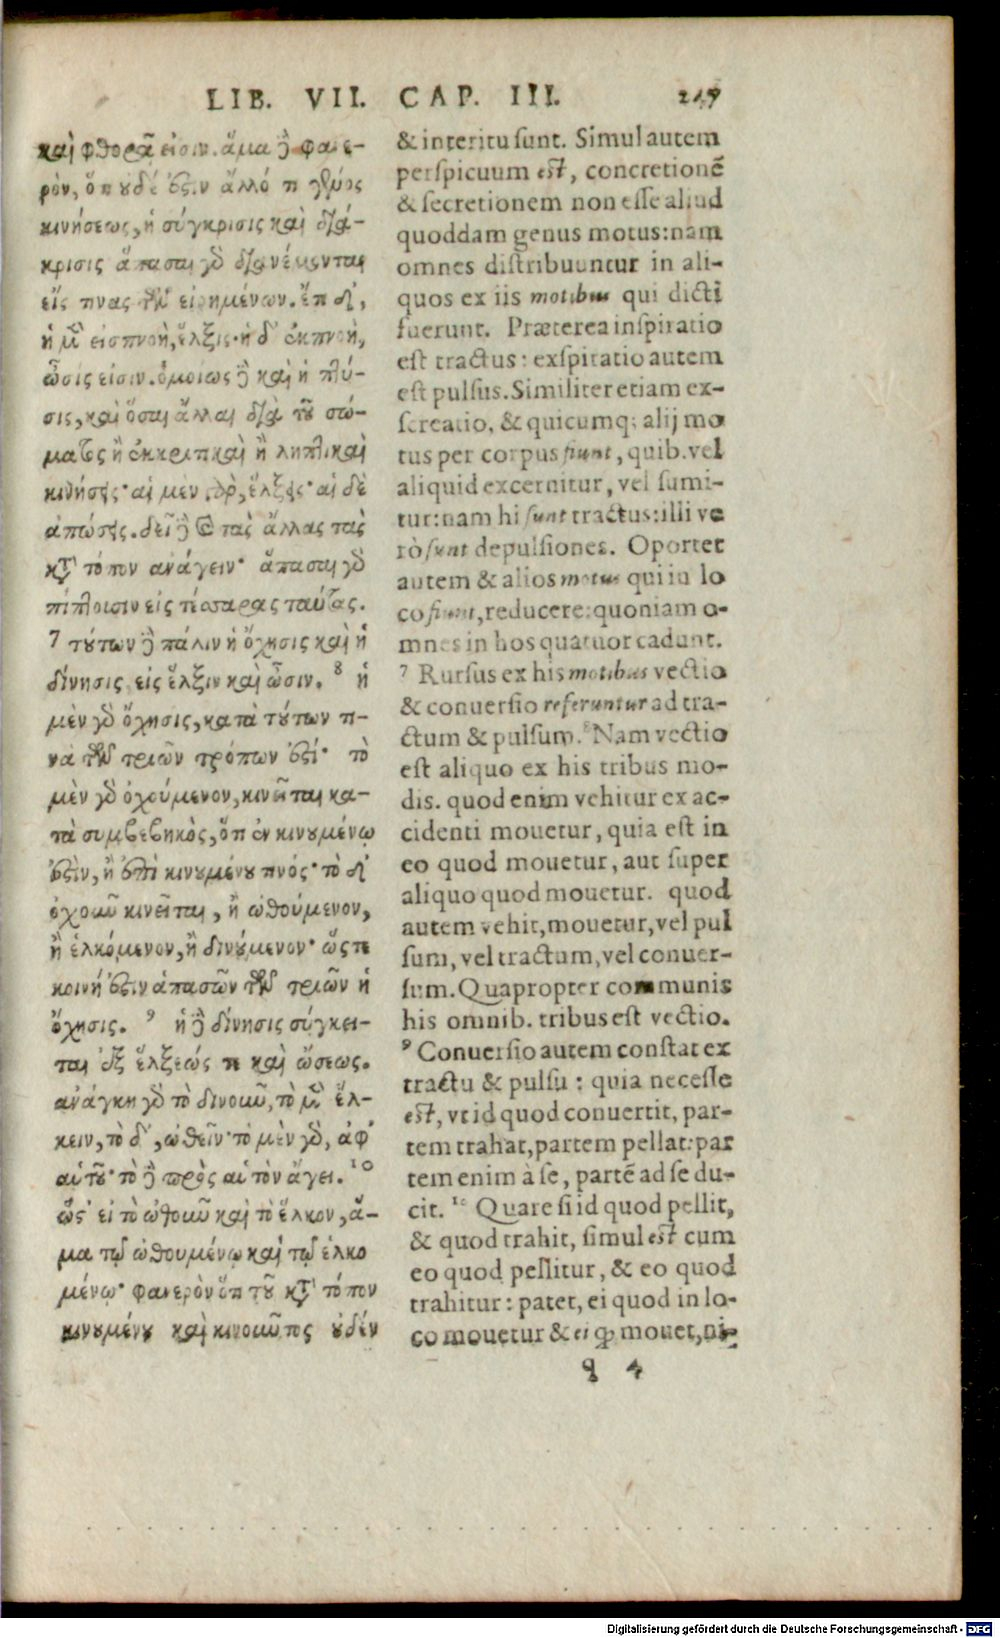 LIB. VII. CAP. III. 217
καὶ φθορᾷ εἰσιν. ἅμα δὲ φανε-
ρὸν, ὅτι οὐδέ ἐστιν ἄλλό τι γένος
κινήσεως, ἡ σύγκρισις καὶ διά-
κρισις ἅπασαι γὰρ διανέμονται
εἴς τινας τῶν εἰρημένων. ἔτι δ',
ἡ μὲν εἰσπνοὴ, ἕλξις· ἡ δ' ἐκπνοὴ,
ὦσις εἰσιν. ὁμοιως δὲ καὶ ἡ πτύ-
σις, καὶ ὅσαι ἄλλαι διὰ τοῦ σώ-
ματος ἢ ἐκκριτικαὶ ἢ ληπτικαὶ
κινήσεις· αἱ μὲν γὰρ, ἕλξεις· αἱ δὲ
ἀπώσεις. δεῖ δὲ καὶ τὰς ἄλλας τὰς
κατὰ τόπον ἀνάγειν· ἅπασαι γὰρ
πίπτουσιν εἰς τέσσαρας ταύτας.
7 τούτων δὲ πάλιν ἡ ὄχησις καὶ ἡ
δίνησις εἰς ἕλξιν καὶ ὦσιν. 8 ἡ
μὲν γὰρ ὄχησις, κατὰ τούτων τι-
νὰ τῶν τριῶν τρόπων ἐστί· τὸ
μὲν γὰρ ὀχούμενον, κινεῖται κα-
τὰ συμβεβηκὸς, ὅτι ἐν κινουμένῳ
ἐστὶν, ἢ ἐπὶ κινουμένου τινός· τὸ δ'
ὀχοῦν κινεῖται, ἢ ὠθούμενον,
ἢ ἑλκόμενον, ἢ δινούμενον· ὥστε
κοινή ἐστιν ἁπασῶν τῶν τριῶν ἡ
ὄχησις. 9 ἡ δὲ δίνησις σύγκει-
ται ἐξ ἕλξεώς τε καὶ ὤσεως.
ἀνάγκη γὰρ τὸ δινοῦν, τὸ μὲν ἕλ-
κειν, τὸ δ', ὠθεῖν· τὸ μὲν γὰρ, ἀφ'
αὑτοῦ· τὸ δὲ πρὸς αὑτὸν ἄγει. 10
ὥς' εἰ τὸ ὠθοῦν καὶ τὸ ἕλκον, ἅ-
μα τῷ ὠθουμένῳ καὶ τῷ ἑλκο
μένῳ· φανερὸν ὅτι τοῦ κατὰ τόπον
κινουμένου καὶ κινοῦντος οὐδέν
& interitu sunt. Simul autem
perspicuum est, concretionē
& secretionem non esse aliud
quoddam genus motus: nam
omnes distribuuntur in ali-
quos ex iis motibus qui dicti
fuerunt. Præterea inspiratio
est tractus: exspiratio autem
est pulsus. Similiter etiam ex-
screatio, & quicumq; alij mo
tus per corpus fiunt, quib. vel
aliquid excernitur, vel sumi-
tur: nam hi sunt tractus: illi ve
rò sunt depulsiones. Oportet
autem & alios motus qui in lo
co fiunt, reducere: quoniam o-
mnes in hos quatuor cadunt.
7 Rursus ex his motibus vectio
& conuersio referuntur ad tra-
ctum & pulsum. 8 Nam vectio
est aliquo ex his tribus mo-
dis. quod enim vehitur ex ac-
cidenti mouetur, quia est in
eo quod mouetur, aut super
aliquo quod mouetur. quod
autem vehit, mouetur, vel pul
sum, vel tractum, vel conuer-
sum. Quapropter communis
his omnib. tribus est vectio.
9 Conuersio autem constat ex
tractu & pulsu: quia necesse
est, vt id quod conuertit, par-
tem trahat, partem pellat: par
tem enim à se, partē ad se du-
cit. 10 Quare si id quod pellit,
& quod trahit, simul est cum
eo quod pellitur, & eo quod
trahitur: patet, ei quod in lo-
co mouetur & ei qđ mouet, ni-
q 4
Digitalisierung gefördert durch die Deutsche Forschungsgemeinschaft - DFG